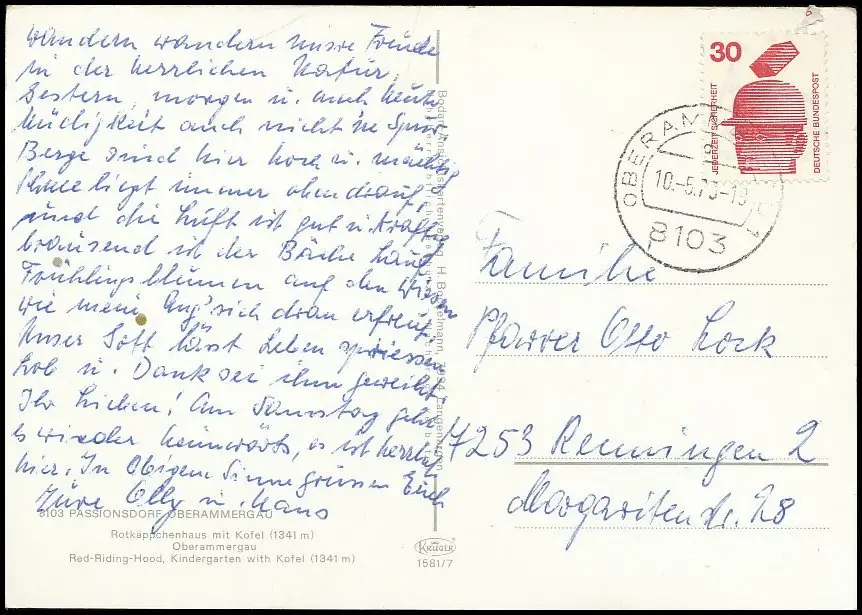 wandern wandern unsre Freude
in der herrlichen Natur,
Gestern, morgen u. auch heute
Müdigkeit auch nicht 'ne Spur
Berge sind hier hoch u. mächtig
liegt immer obendrauf,
und die Luft ist gut u. kräftig
brausend ist der Bäche Lauf
Frühlingsblumen auf den Wiesen
wie mein Aug' sich dran erfreut,
Unser Gott lässt Leben spriessen
Lob u. Dank sei ihm geweiht.
Ihr Lieben! Am Samstag geht
es wieder heimwärts, es ist herrlich
hier. In obigem Sinne grüssen Euch
Eure Olly u. Hans
8103 PASSIONSDORF OBERAMMERGAU
Rotkäppchenhaus mit Kofel (1341 m)
Oberammergau
Red-Riding-Hood, Kindergarten with Kofel (1341 m)
KRÜGER
1581/7
30
JEDERZEIT SICHERHEIT
DEUTSCHE BUNDESPOST
OBERAM
10.-5.73-19
8103
Familie
Pfarrer Otto Lock
7253 Renningen 2
Margaritenstr. 28